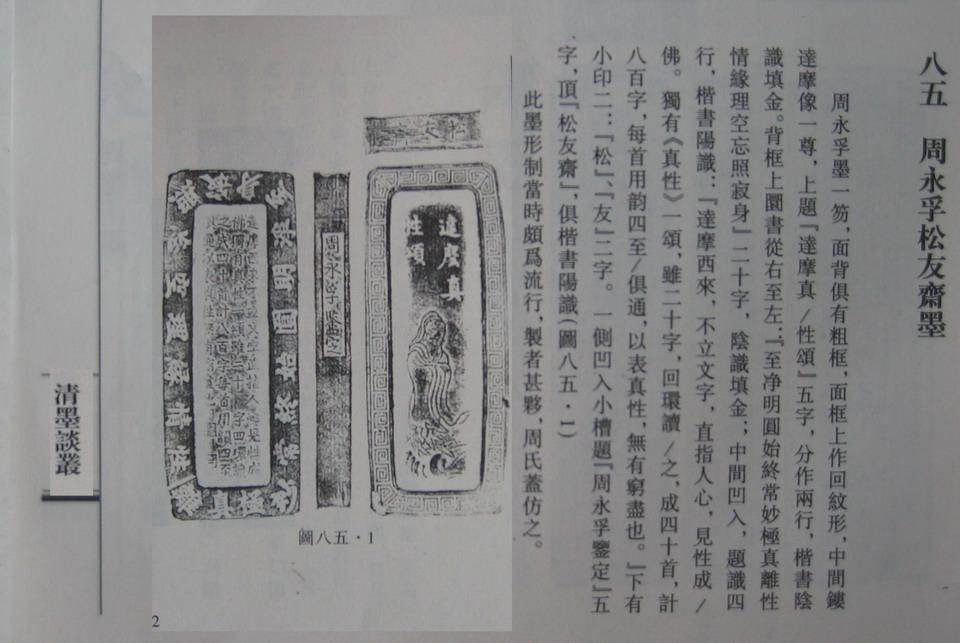 八五　周永孚松友齋墨
周永孚墨一笏，面背俱有粗框，面框上作回紋形，中間鏤
達摩像一尊，上題『達摩真／性頌』五字，分作兩行，楷書陰
識填金。背框上圜書從右至左：『至净明圓始終常妙極真離性
情緣理空忘照寂身』二十字，陰識填金；中間凹入，題識四
行，楷書陽識：『達摩西來，不立文字，直指人心，見性成／
佛。獨有《真性》一頌，雖二十字，回環讀／之，成四十首，計
八百字，每首用韵四至／俱通，以表真性，無有窮盡也。』下有
小印二：『松』、『友』二字。一側凹入小槽題『周永孚鑒定』五
字，頂『松友齋』，俱楷書陽識（圖八五·1）
此墨形制當時頗爲流行，製者甚夥，周氏蓋仿之。
達摩真
性頌
周永孚鑒定
圖八五·1
清墨談叢
2